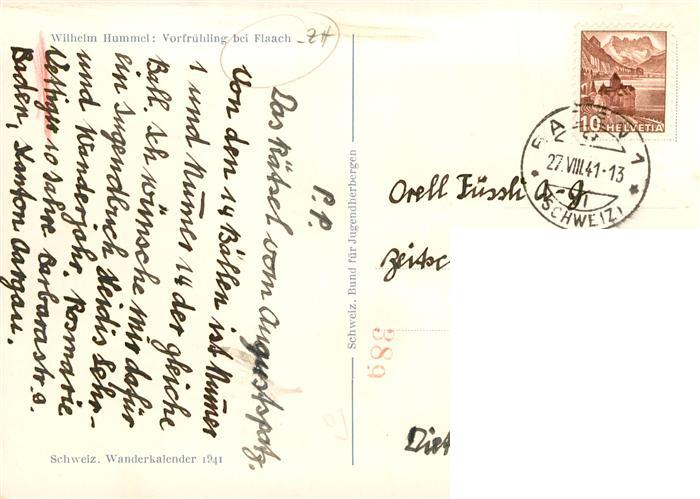 Wilhelm Hummel: Vorfrühling bei Flaach - ZH
P.P.
Das Rätsel vom Augustspatz.
Von den 14 Bällen ist Numer
1 und Numer 14 der gleiche
Ball. Ich wünsche mir dafür
ein Jugendbuch Heidis Lehr-
und Wanderjahr. Rosmarie
10 Jahre Barbarastr. 9.
Baden, Kanton Aargau.
Schweiz. Wanderkalender 1941
Schweiz. Bund für Jugendherbergen
HELVETIA
10
BADEN 1
27.VIII.41-13
(SCHWEIZ)
Orell Füssli A-G
Zeitsc
389
Diet